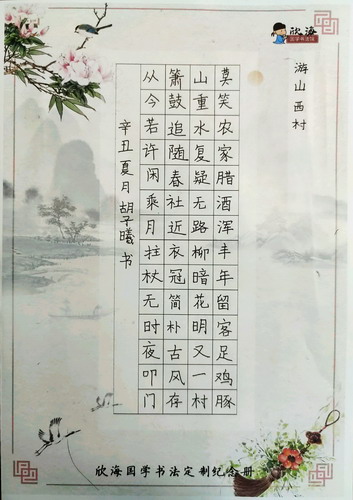 欣海
国学书法馆
游山西村
莫笑农家腊酒浑丰年留客足鸡豚
山重水复疑无路柳暗花明又一村
箫鼓追随春社近衣冠简朴古风存
从今若许闲乘月拄杖无时夜叩门
辛丑夏月胡子曦书
欣海国学书法定制纪念册